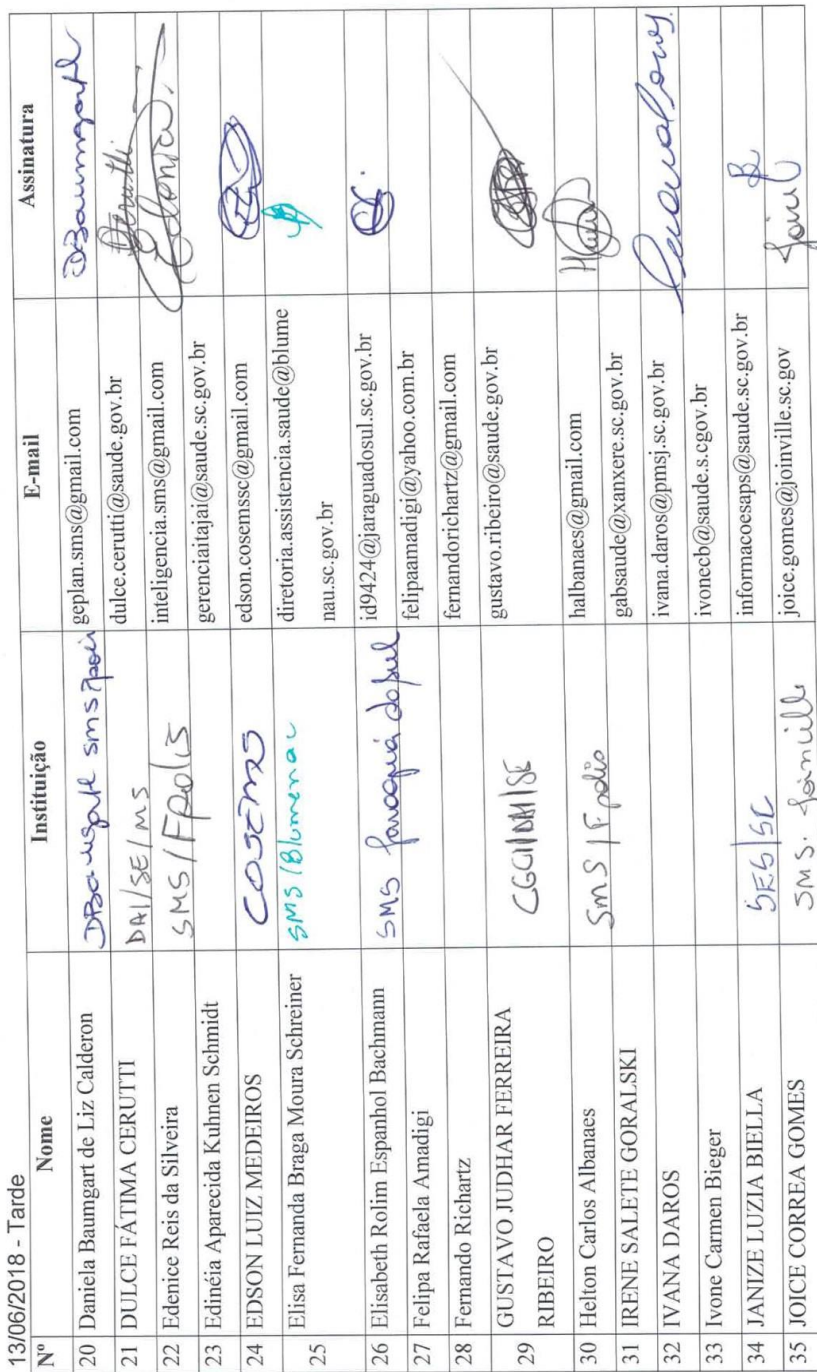 13/06/2018 - Tarde
Nº Nome Instituição E-mail Assinatura
20 Daniela Baumgart de Liz Calderon geplan.sms@gmail.com DBaumgart
21 DULCE FÁTIMA CERUTTI DAI/SE/MS dulce.cerutti@saude.gov.br
22 Edenice Reis da Silveira SMS/Fpolis inteligencia.sms@gmail.com
23 Edinéia Aparecida Kuhnen Schmidt gerenciaitajai@saude.sc.gov.br
24 EDSON LUIZ MEDEIROS COSEMS edson.cosemssc@gmail.com
25 Elisa Fernanda Braga Moura Schreiner SMS/Blumenau diretoria.assistencia.saude@blume
nau.sc.gov.br
26 Elisabeth Rolim Espanhol Bachmann SMS Jaraguá do Sul id9424@jaraguadosul.sc.gov.br
27 Felipa Rafaela Amadigi felipaamadigi@yahoo.com.br
28 Fernando Richartz fernandorichartz@gmail.com
29 GUSTAVO JUDHAR FERREIRA
RIBEIRO gustavo.ribeiro@saude.gov.br
30 Helton Carlos Albanaes SMS/Fpolis halbanaes@gmail.com
31 IRENE SALETE GORALSKI gabsaude@xanxere.sc.gov.br
32 IVANA DAROS ivana.daros@pmsj.sc.gov.br
33 Ivone Carmen Bieger ivonecb@saude.s.cgov.br
34 JANIZE LUZIA BIELLA SES/SC informacoesaps@saude.sc.gov.br
35 JOICE CORREA GOMES SMS. Joinville joice.gomes@joinville.sc.gov Joice